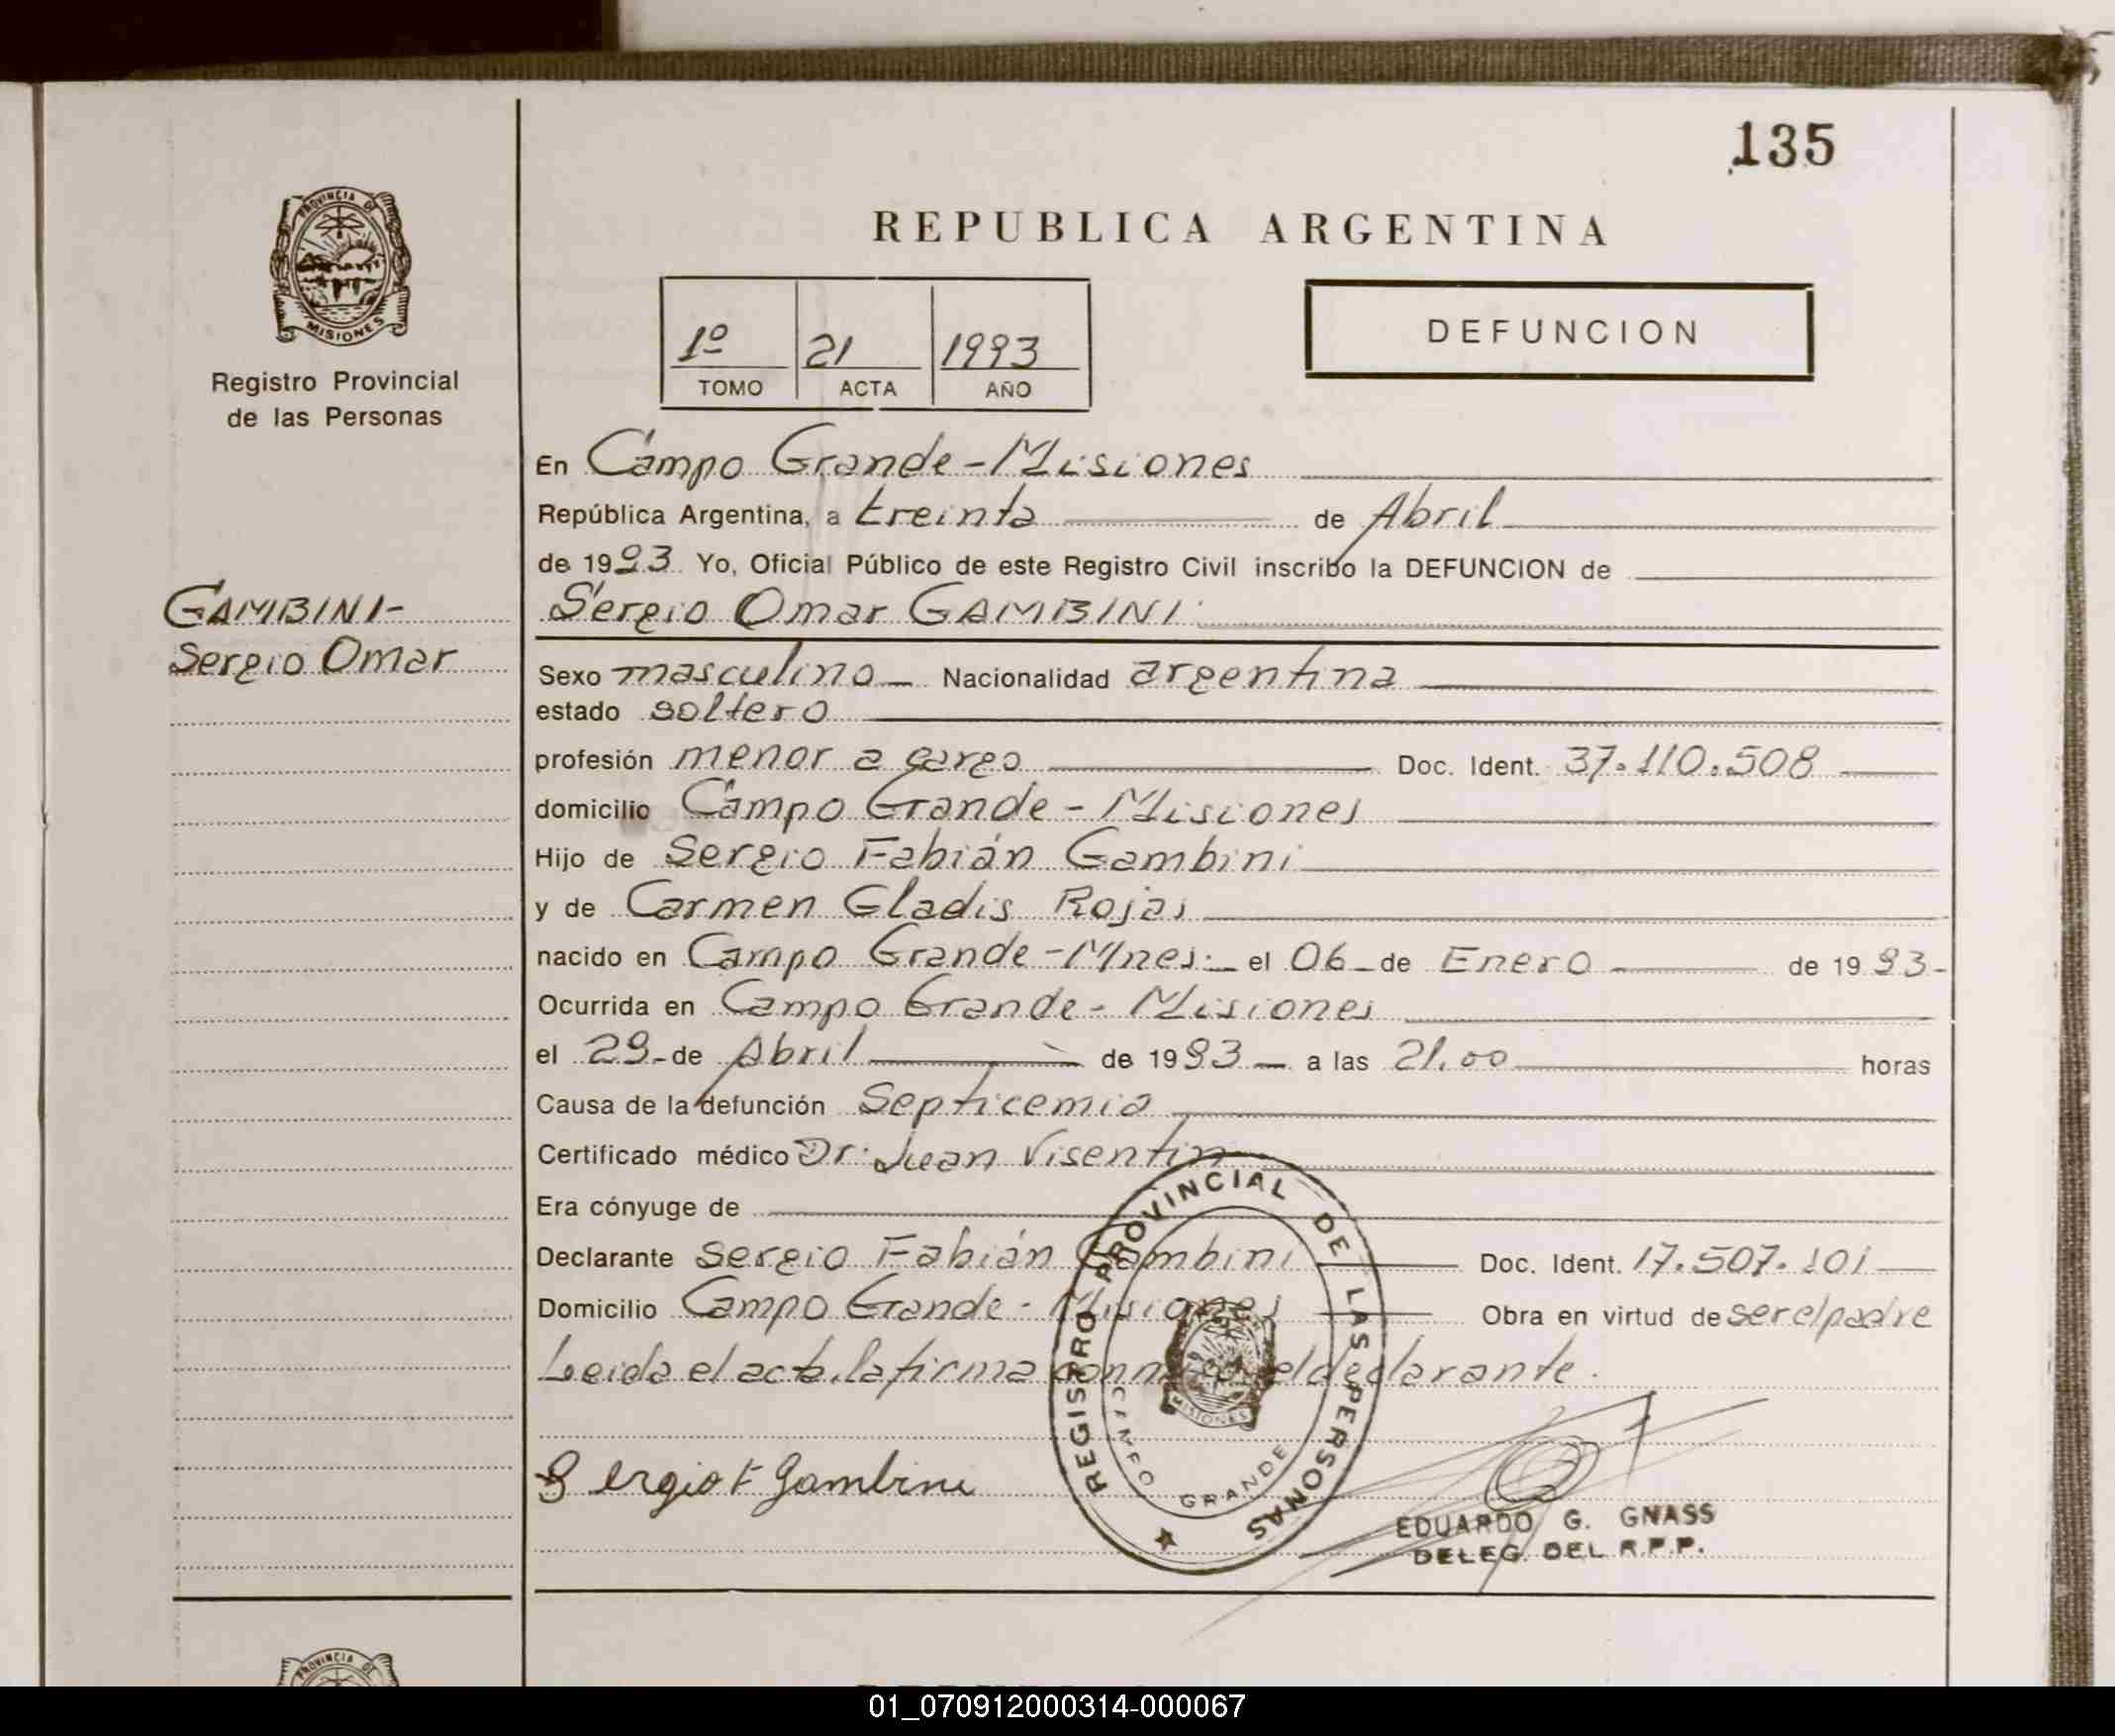 135
REPUBLICA ARGENTINA
PROVINCIA DE
MISIONES
Registro Provincial
de las Personas
1º 21 1993
TOMO ACTA AÑO
DEFUNCION
En Campo Grande - Misiones
República Argentina, a treinta de Abril
de 1993 Yo, Oficial Público de este Registro Civil inscribo la DEFUNCION de
GAMBINI-
Sergio Omar
Sergio Omar GAMBINI
Sexo masculino Nacionalidad argentina
estado soltero
profesión menor a cargo Doc. Ident. 37.110.508
domicilio Campo Grande - Misiones
Hijo de Sergio Fabián Gambini
y de Carmen Gladis Rojas
nacido en Campo Grande - Mnes. el 06 de Enero de 1993-
Ocurrida en Campo Grande - Misiones
el 29 de Abril de 1993 a las 21.00 horas
Causa de la defunción Septicemia
Certificado médico Dr. Juan Visentin
Era cónyuge de
Declarante Sergio Fabián Gambini Doc. Ident. 17.507.101
Domicilio Campo Grande - Misiones Obra en virtud de ser el padre
Leida el acta, la firma el declarante.
REGISTRO PROVINCIAL DE LAS PERSONAS
CAMPO GRANDE
MISIONES
Sergio F Gambini
EDUARDO G. GNASS
DELEG. DEL R.P.P.
PROVINCIA DE
01_070912000314-000067